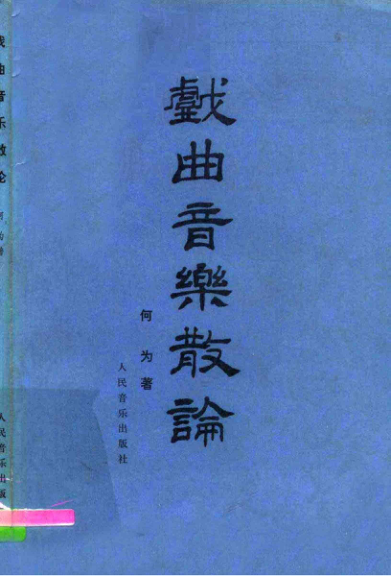 戲曲音樂散論
何为著
人民音乐出版社
戏曲音乐散论
何为著
人民音乐出版